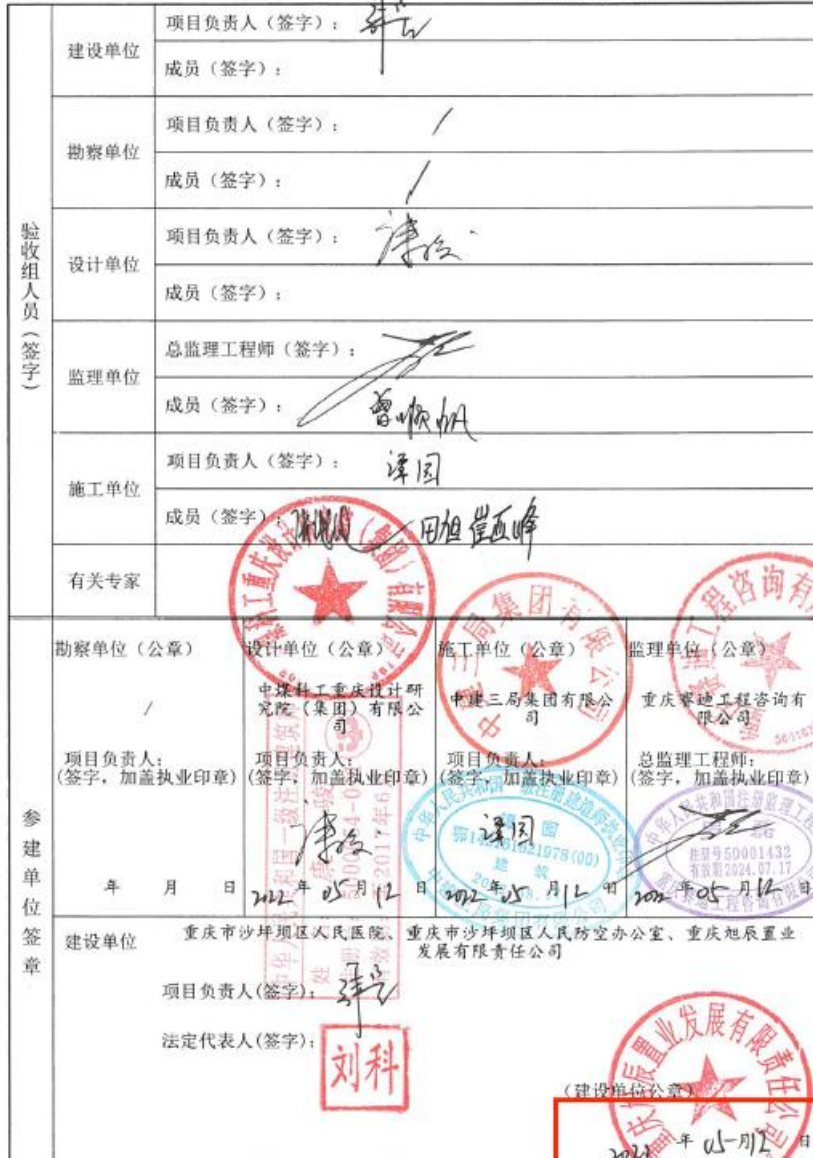 验收组人员(签字)
建设单位
项目负责人(签字):
成员(签字):
勘察单位
项目负责人(签字): /
成员(签字): /
设计单位
项目负责人(签字):
成员(签字):
监理单位
总监理工程师(签字):
成员(签字): 曾顺帆
施工单位
项目负责人(签字): 谭园
成员(签字): 田旭 崔亚峰
有关专家
参建单位签章
勘察单位(公章)
/
项目负责人:
(签字,加盖执业印章)
年 月 日
设计单位(公章)
中煤科工重庆设计研
究院(集团)有限公
司
项目负责人:
(签字,加盖执业印章)
2022年05月12日
施工单位(公章)
中建三局集团有限公
司
项目负责人:
(签字,加盖执业印章)
谭园
建筑
2022年05月12日
中建三局集团有限公司
监理单位(公章)
重庆赛迪工程咨询有
限公司
总监理工程师:
(签字,加盖执业印章)
注册号50001432
有效期2024.07.17
2022年05月12日
建设单位
重庆市沙坪坝区人民医院、重庆市沙坪坝区人民防空办公室、重庆旭辰置业
发展有限责任公司
项目负责人(签字):
法定代表人(签字):
刘科
(建设单位公章)
2022年05月12日